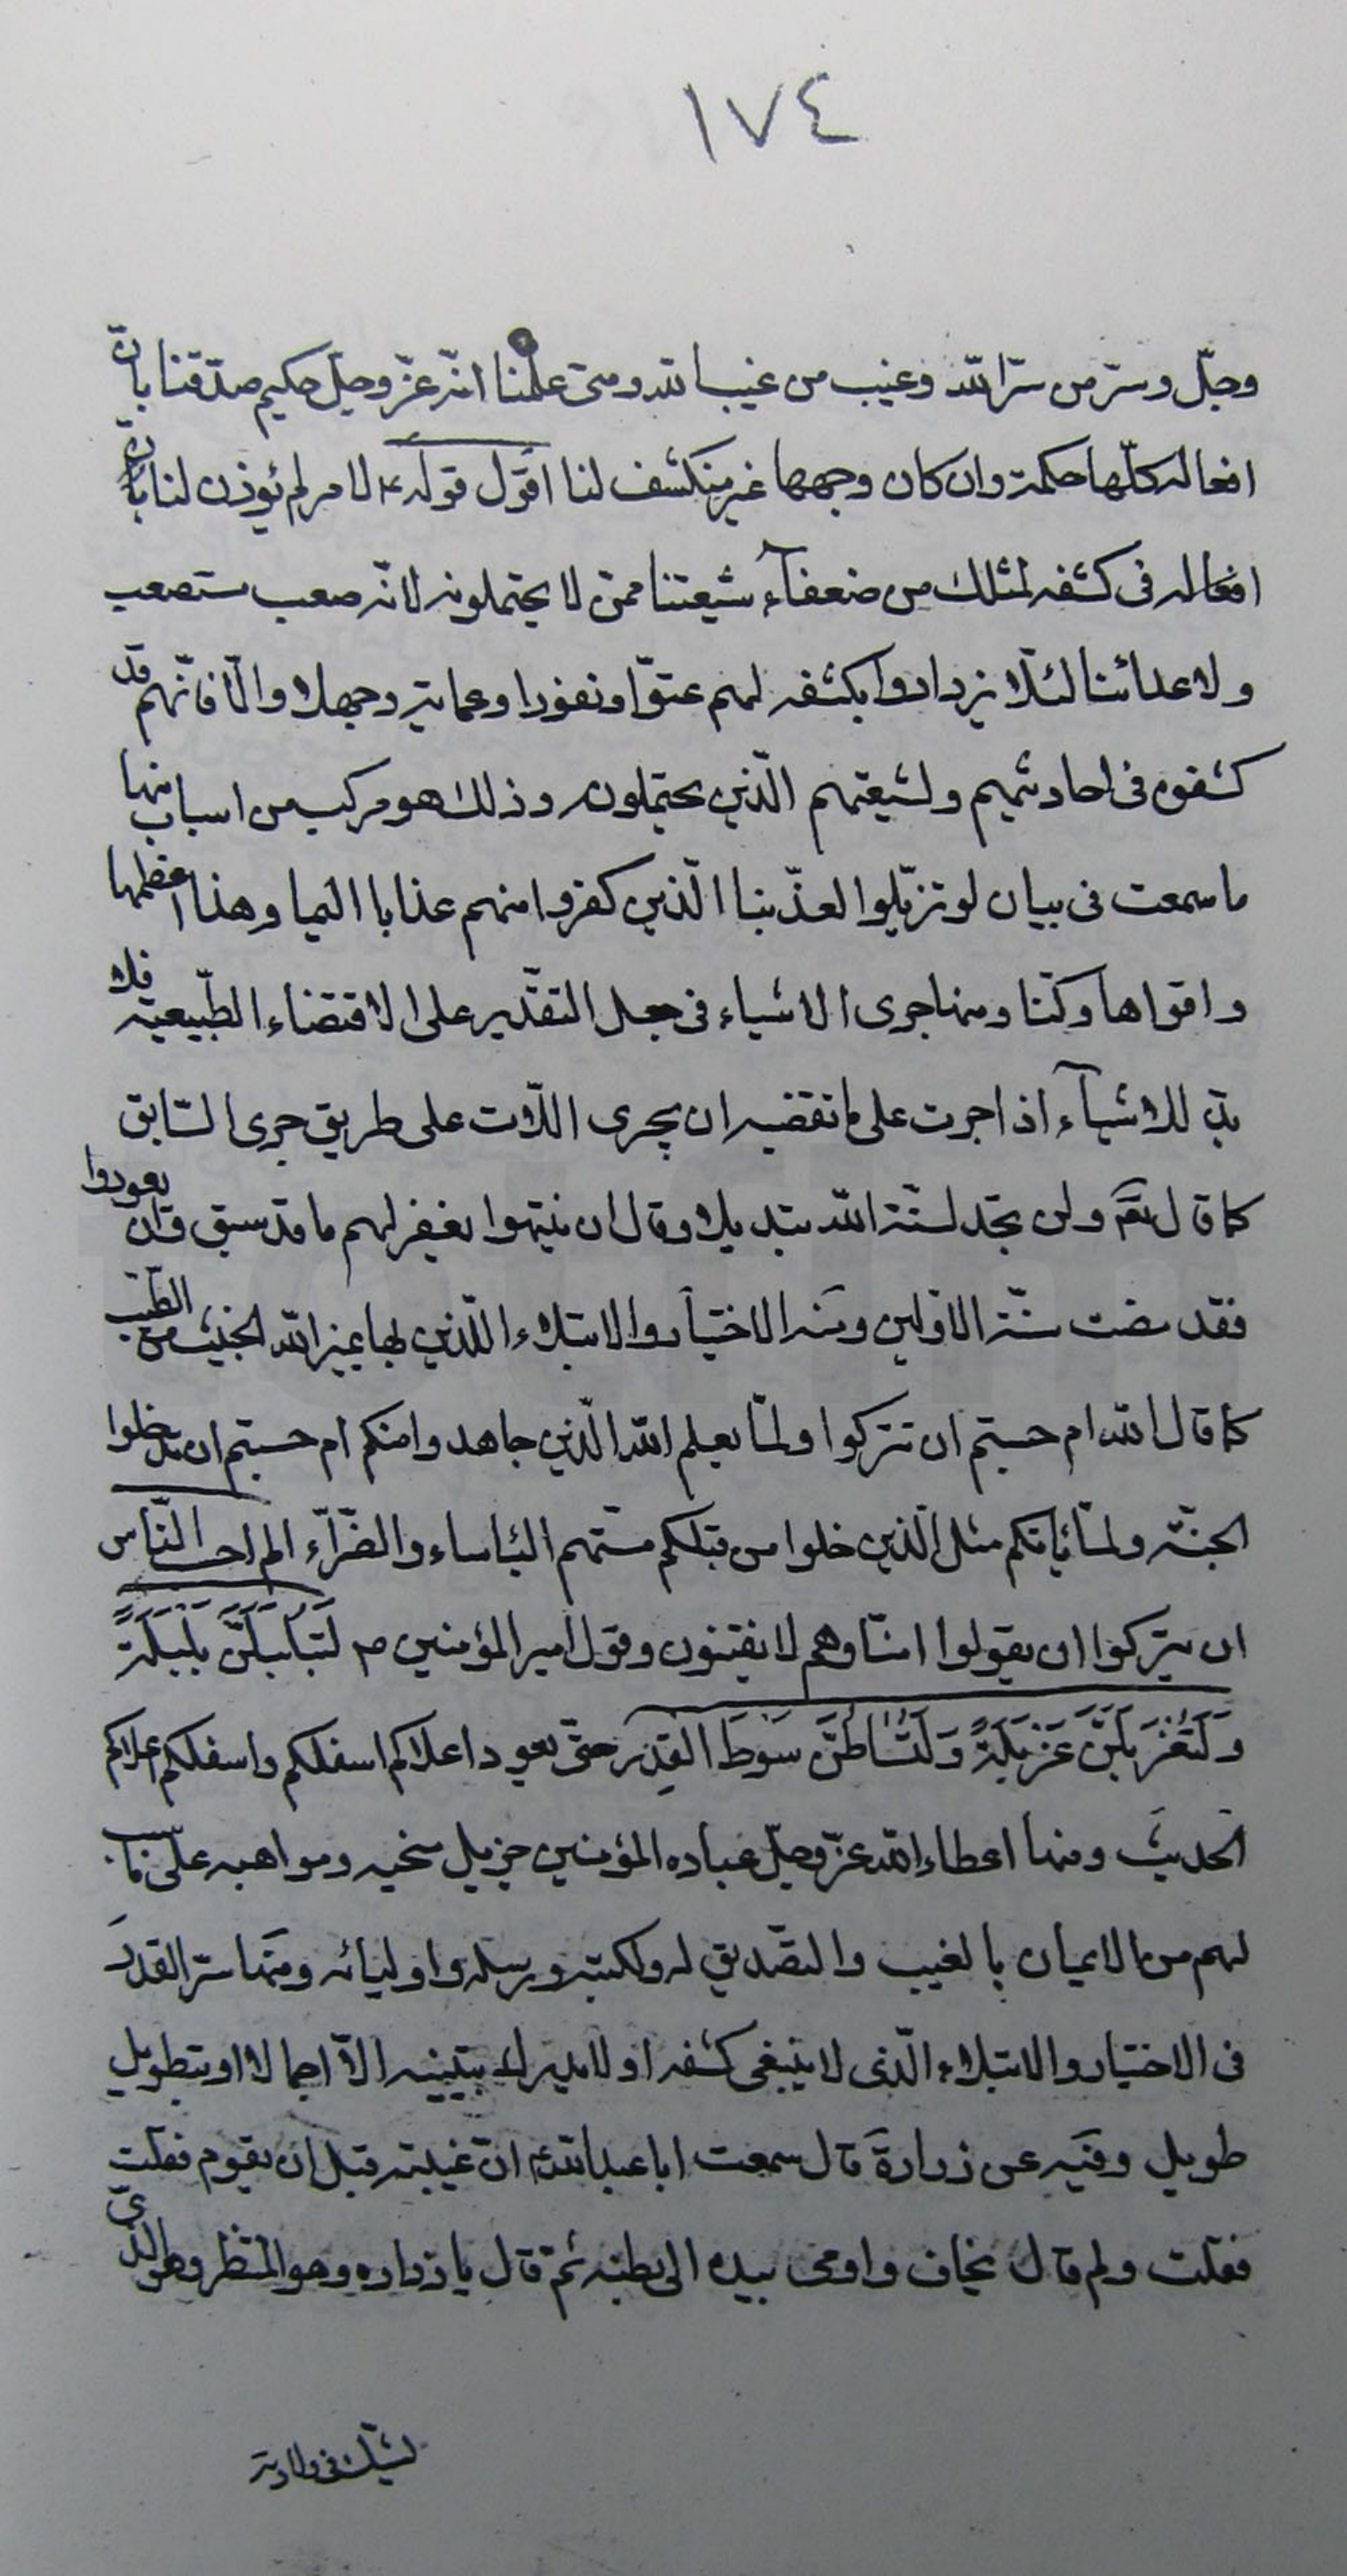 ١٧٤
وجلّ وسرّ من سرّ الله وغيب من غيب الله ومتى علمنا انّه عزّ وجلّ حكيم صدّقنا بانّ
افعاله كلّها حكمة وان كان وجهها غير منكشف لنا اقول قوله ع لامر لم يؤذن لنا بانّ
افعاله فى كشفه لمثلك من ضعفآء شيعتنا ممّن لا يحتملونه لانّه صعب مستصعب
ولا عدائنا لئلّا يزدادوا بكشفه لهم عتوّا ونفورا وعماية وجهلا والّا فانّهم قد
كشفوه فى احاديثهم ولشيعتهم الّذين يحتملونه وذلك هو مركب من اسباب منها
ما سمعت فى بيان لو تزيّلوا لعذّبنا الّذين كفروا منهم عذابا اليما وهذا اعظمها
واقواها وكنّا ومنها جرى الاشياء فى جعل التقدير على الاقتضاء الطّبيعيّة فلا
بدّ للاشيآء اذا جرت على ما تقضيه ان يجرى اللات على طريق جرى السّابق
كما قال تعم ولن تجد لسنّة الله تبديلا وقال ان ينتهوا يغفر لهم ما قد سبق وان يعودوا
فقد مضت سنّة الاوّلين ومنه الاختبار والابتلاء اللّذين بها يميز الله الخبيث من الطّيب
كما قال الله ام حسبتم ان تتركوا ولمّا يعلم الله الّذين جاهدوا منكم ام حسبتم ان تدخلوا
الجنّة ولمّا ياتكم مثل الّذين خلوا من قبلكم مسّتهم البئاساء والضّرّآء الم احسب النّاس
ان يتركوا ان يقولوا امنّا وهم لا يفتنون وقول امير المؤمنين ص لَتُبَلْبَلُنَّ بَلْبَلَةً
وَلَتُغَرْبَلُنَّ غَرْبَلَةً وَلَتُسَاطُنَّ سَوْطَ القِدْرِ حتّى يعود اعلاكم اسفلكم واسفلكم اعلاكم
الحديث ومنها اعطاء الله عزّ وجلّ عباده المؤمنين جزيل منحه ومواهبه على ما سبب
لهم من الايمان بالغيب والتصديق له ولكتبه ورسله واوليائه ومنها سرّ القدر
فى الاختيار والابتلاء الّذى لا ينبغى كشفه او لا يدرك بتبيينه الّا اجمالا او بتطويل
طويل وفيه عن زرارة قال سمعت ابا عبد الله ع انّ غيبته قبل ان يقوم فقلت
فقلت ولم قال يخاف واومى بيده الى بطنه ثمّ قال يا زراره وهو المنتظر وهو الّذى
يشكّ فى ولادته